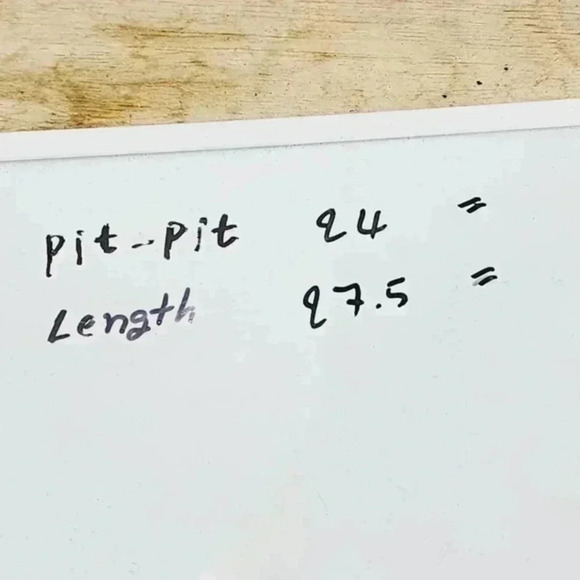 Pit-Pit 24 "
Length 27.5 "